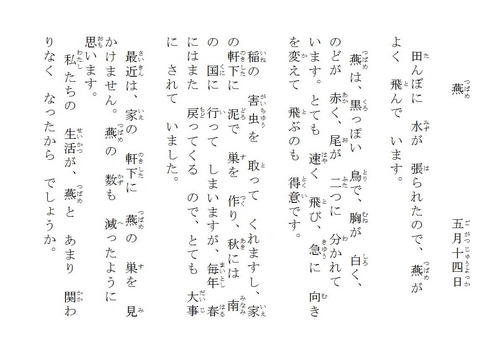 燕 五月十四日
田んぼに 水が 張られたので、燕が
よく 飛んで います。
燕は、黒っぽい 鳥で、胸が 白く、
のどが 赤く、尾が 二つに 分かれて
います。とても 速く 飛び、急に 向き
を変えて 飛ぶのも 得意です。
稲の 害虫を 取って くれますし、家
の 軒下に 泥で 巣を 作り、秋には 南
の 国に 行って しまいますが、毎年 春
にはまた 戻ってくる ので、とても 大事
に されて いました。
最近は、家の 軒下に 燕の 巣を 見
かけません。燕の 数も 減ったように
思います。
私たちの 生活が、燕と あまり 関わ
りなく なったから でしょうか。